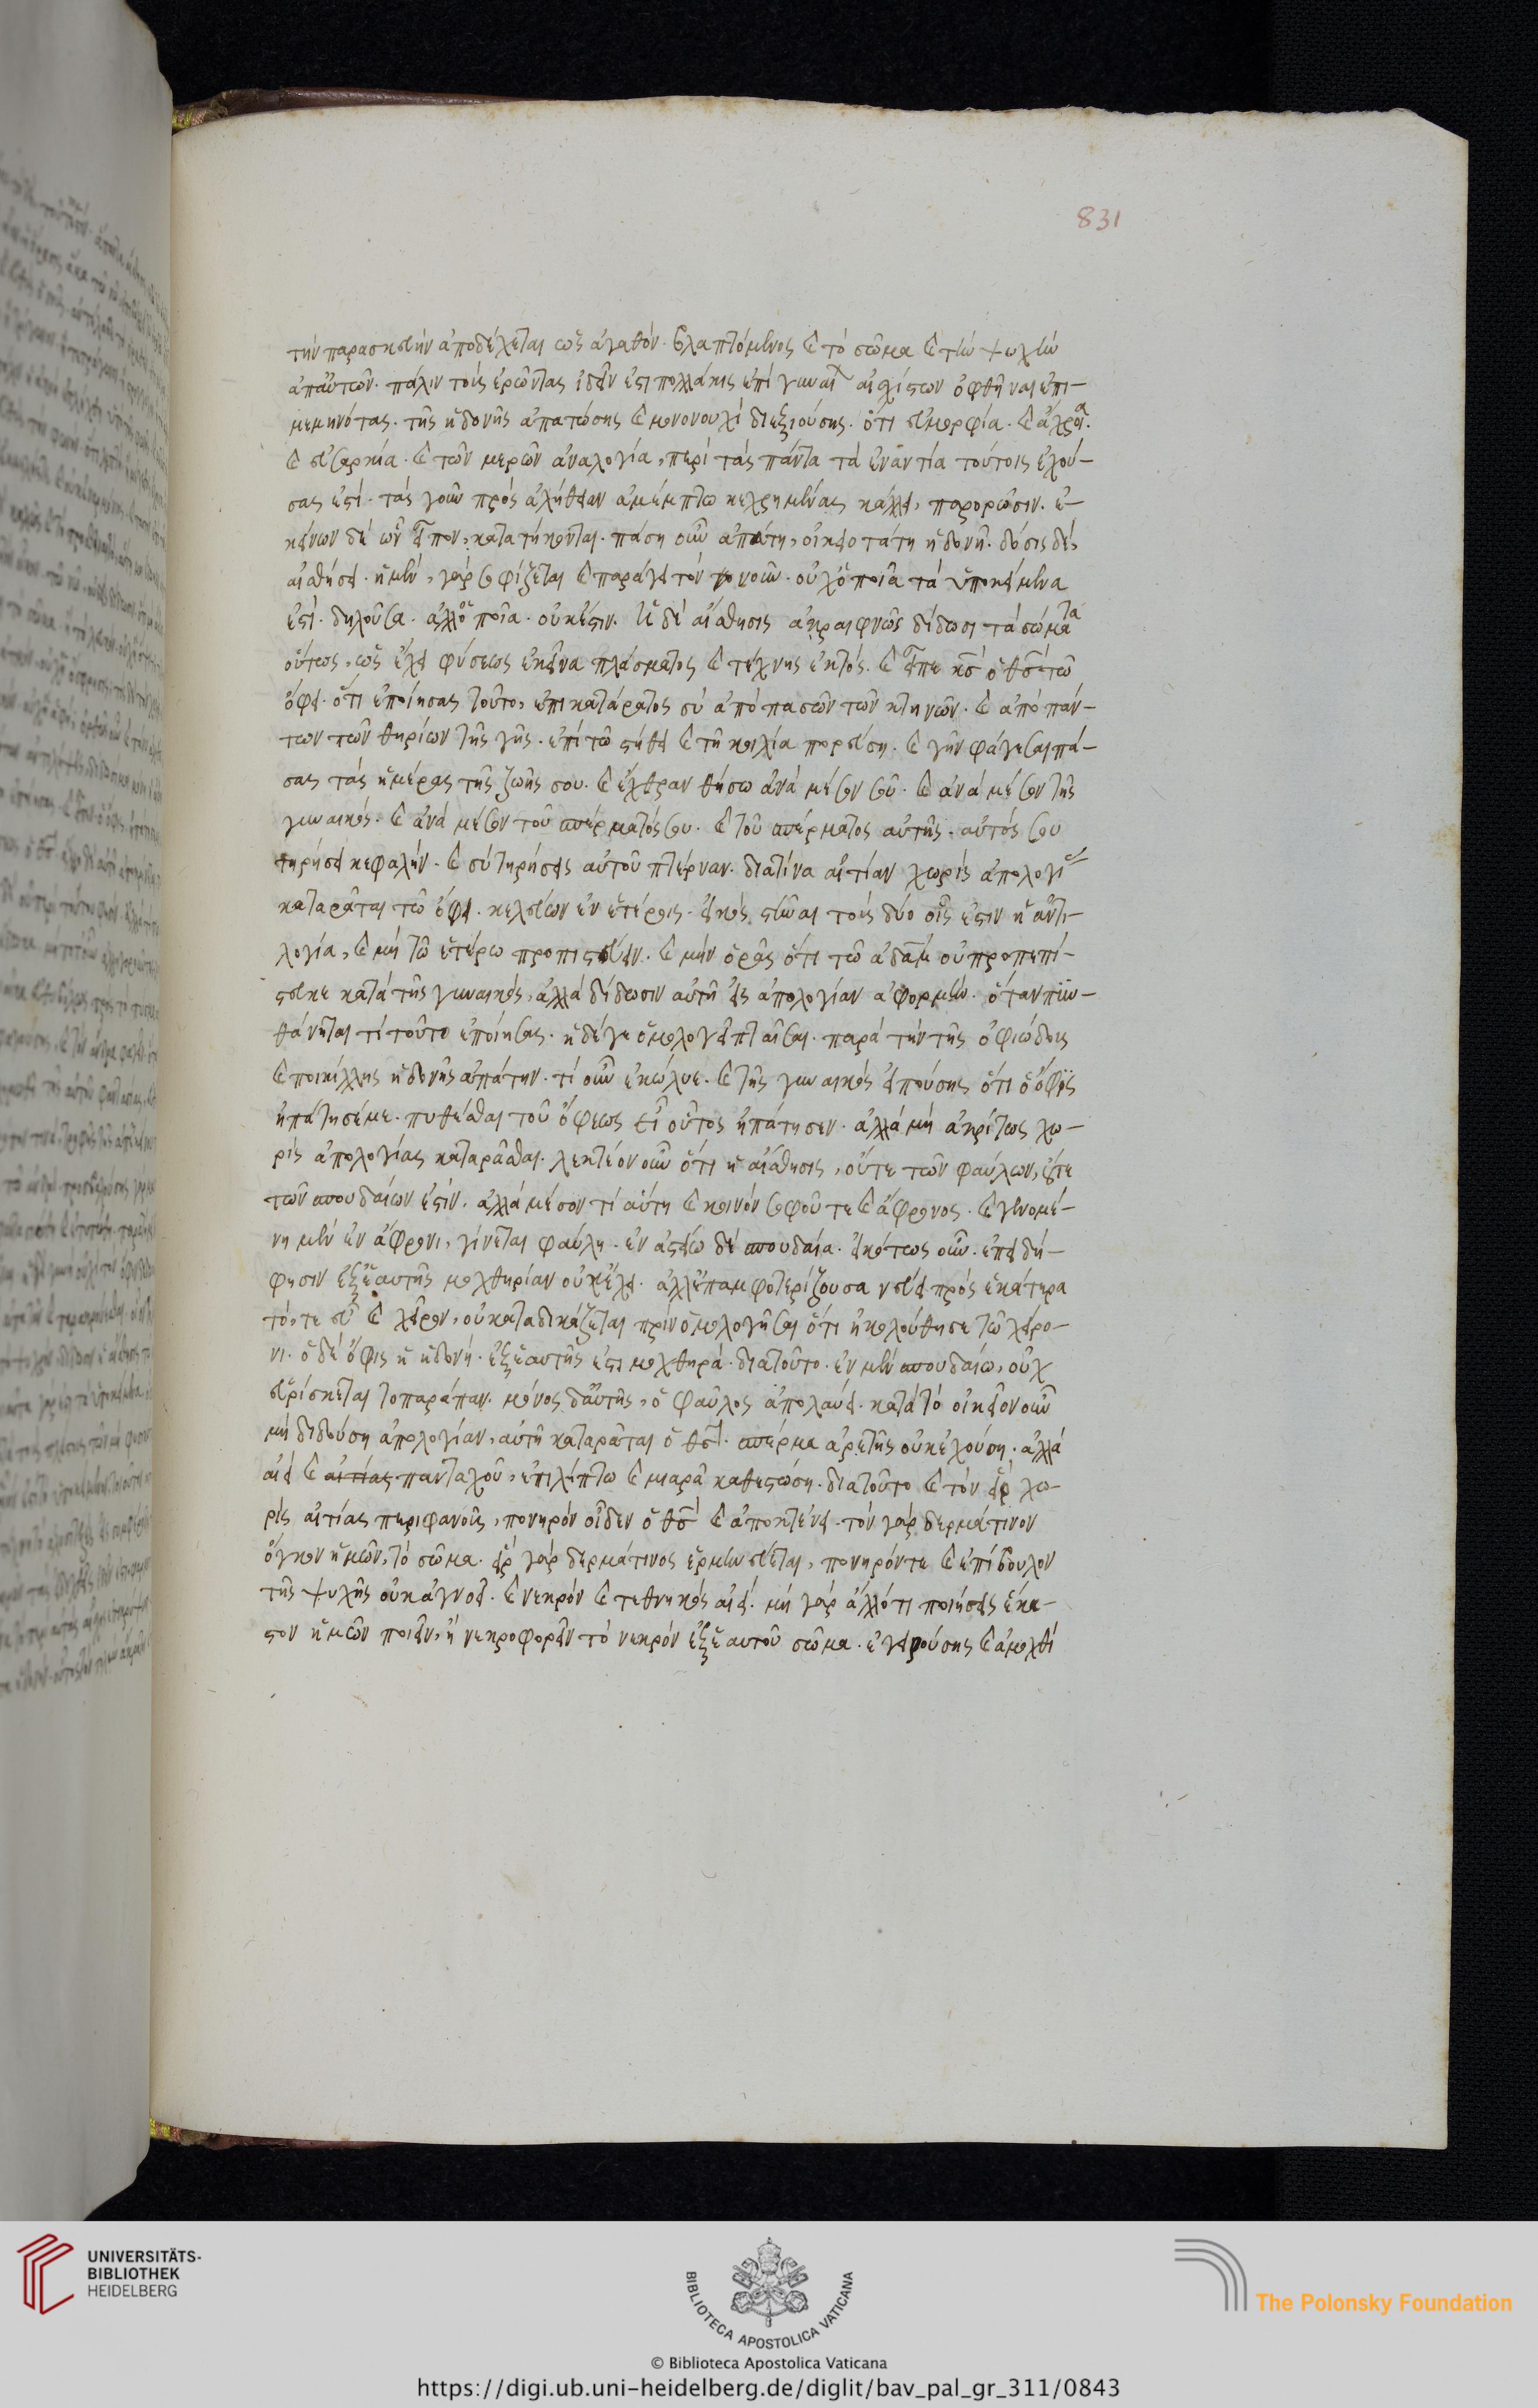 831
τὴν παρασκευὴν ἀποδέχεται ὡς ἀγαθόν. βλαπτόμενος καὶ τὸ σῶμα καὶ τὴν ψυχὴν
ἀπ' αὐτῶν. πάλιν τοὺς ἐρῶντας ἰδεῖν ἐστι πολλάκις ἐπὶ γυναι αἰσχίστων ὀφθῆναι ἐπι-
μεμηνότας. τῆς ἡδονῆς ἀπατώσης καὶ μονονουχὶ διεξιούσης. ὅτι εὐμορφία. καὶ εὔχροια.
καὶ εὐσαρκία. καὶ τῶν μερῶν ἀναλογία, περὶ τὰς πάντα τὰ ἐναντία τούτοις ἐχού-
σας ἐστί. τὰς γοῦν πρὸς ἀλήθειαν ἀμέμπτω κεχρημένας κάλλει, παρορῶσιν. ἐ-
κείνων δὲ ὧν εἶπον, κατατήκονται. πᾶσα οὖν ἀπάτη, οἰκειοτάτη ἡδονῆ. δόσις δὲ,
αἰσθήσει. ἡ μὲν, γὰρ σοφίζεται καὶ παράγει τὸν νοῦν. οὐχ ὁποῖα τὰ ὑποκείμενα
ἐστί. δηλοῦσα. ἀλλ' ὁποῖα. οὐκ ἔστιν. ἡ δὲ αἴσθησις ἀκραιφνῶς δίδωσι τὰ σώματα
οὕτως, ὡς ἔχει φύσεως ἐκεῖνα πλάσματος καὶ τέχνης ἐκτός. καὶ εἶπε κς ὁ θς τῶ
ὄφει. ὅτι ἐποίησας τοῦτο, ἐπικατάρατος σὺ ἀπὸ πασῶν τῶν κτηνῶν. καὶ ἀπὸ πάν-
των τῶν θηρίων τῆς γῆς. ἐπὶ τῶ στήθει καὶ τῆ κοιλία πορεύση. καὶ γῆν φάγεσαι πά-
σας τὰς ἡμέρας τῆς ζωῆς σου. καὶ ἔχθραν θήσω ἀνὰ μέσον σοῦ. καὶ ἀνὰ μέσον τῆς
γυναικός. καὶ ἀνὰ μέσον τοῦ σπέρματός σου. καὶ τοῦ σπέρματος αὐτῆς. αὐτός σου
τηρήσει κεφαλὴν. καὶ σὺ τηρήσεις αὐτοῦ πτέρναν. διὰ τίνα αἰτίαν χωρὶς ἀπολογίας
καταρᾶται τῶ ὄφει. κελεύων ἐν ἑτέροις. εἰκὸς στῆναι τοὺς δύο οἷς ἐστιν ἡ ἀντι-
λογία, καὶ μὴ τῶ ἑτέρω προπιστεύειν. καὶ μὴν ὁρᾶς ὅτι τῶ ἀδὰμ οὐ προπεπί-
στευκε κατὰ τῆς γυναικός, ἀλλὰ δίδωσιν αὐτῆ εἰς ἀπολογίαν ἀφορμὴν. ὅταν πυν-
θάνηται τί τοῦτο ἐποίησας. ἡ δέ γε ὁμολογεῖ πταῖσαι. παρὰ τὴν τῆς ὀφιώδους
καὶ ποικίλλης ἡδονῆς ἀπάτην. τί οὖν ἐκώλυε. καὶ τῆς γυναικὸς εἰπούσης ὅτι ὁ ὄφις
ἠπάτησέ με. πυθέσθαι τοῦ ὄφεως εἰ οὗτος ἠπάτησεν. ἀλλὰ μὴ ἀκρίτως χω-
ρὶς ἀπολογίας καταρᾶσθαι. λεκτέον οὖν ὅτι ἡ αἴσθησις, οὔτε τῶν φαύλων, οὔτε
τῶν σπουδαίων ἐστίν. ἀλλὰ μέσον τί αὕτη καὶ κοινὸν σοφοῦ τε καὶ ἄφρονος. καὶ γενομέ-
νη μὲν ἐν ἄφρονι, γίνεται φαύλη. ἐν ἀστείω δὲ σπουδαία. εἰκότως οὖν. ἐπειδὴ
φησιν ἐξ ἑαυτῆς μοχθηρίαν οὐκ ἔχει. ἀλλ' ἐπαμφοτερίζουσα νεύει πρὸς ἑκάτερα
τό, τε εὖ καὶ χεῖρον, οὐ καταδικάζεται πρὶν ὁμολογῆσαι ὅτι ἠκολούθησε τῶ χείρο-
νι. ὁ δὲ ὄφις ἡ ἡδονὴ. ἐξ ἑαυτῆς ἐστι μοχθηρά. διὰ τοῦτο. ἐν μὲν σπουδαίω, οὐχ
εὑρίσκεται τοπαράπαν. μόνος δ' αὐτῆς, ὁ φαῦλος ἀπολαύει. κατὰ τὸ οἰκεῖον οὖν
μὴ διδούση ἀπολογίαν, αὐτῆ καταρᾶται ὁ θς. σπέρμα ἀρετῆς οὐκ ἐχούση. ἀλλὰ
αἰεὶ καὶ αἰτίας πανταχοῦ, ἐπιλήπτω καὶ μιαρᾶ καθεστώση. διὰ τοῦτο καὶ τὸν εἲρ χω-
ρὶς αἰτίας περιφανοῦς, πονηρὸν οἶδεν ὁ θς καὶ ἀποκτένει. τὸν γὰρ δερμάτινον
ὄγκον ἡμῶν, τὸ σῶμα. εἲρ γὰρ δερμάτινος ἑρμηνεύεται, πονηρόν τε καὶ ἐπίβουλον
τῆς ψυχῆς οὐκ ἀγνοεῖ. καὶ νεκρὸν καὶ τεθνηκὸς αἰεί. μὴ γὰρ ἄλλό τι ποιήσεις ἕκα-
στον ἡμῶν ποιεῖν, ἢ νεκροφορεῖν τὸ νεκρὸν ἐξ ἑαυτοῦ σῶμα. ἐγειρούσης καὶ ἀμοχθὶ
UNIVERSITÄTS-
BIBLIOTHEK
HEIDELBERG
BIBLIOTECA APOSTOLICA VATICANA
The Polonsky Foundation
© Biblioteca Apostolica Vaticana
https://digi.ub.uni-heidelberg.de/diglit/bav_pal_gr_311/0843